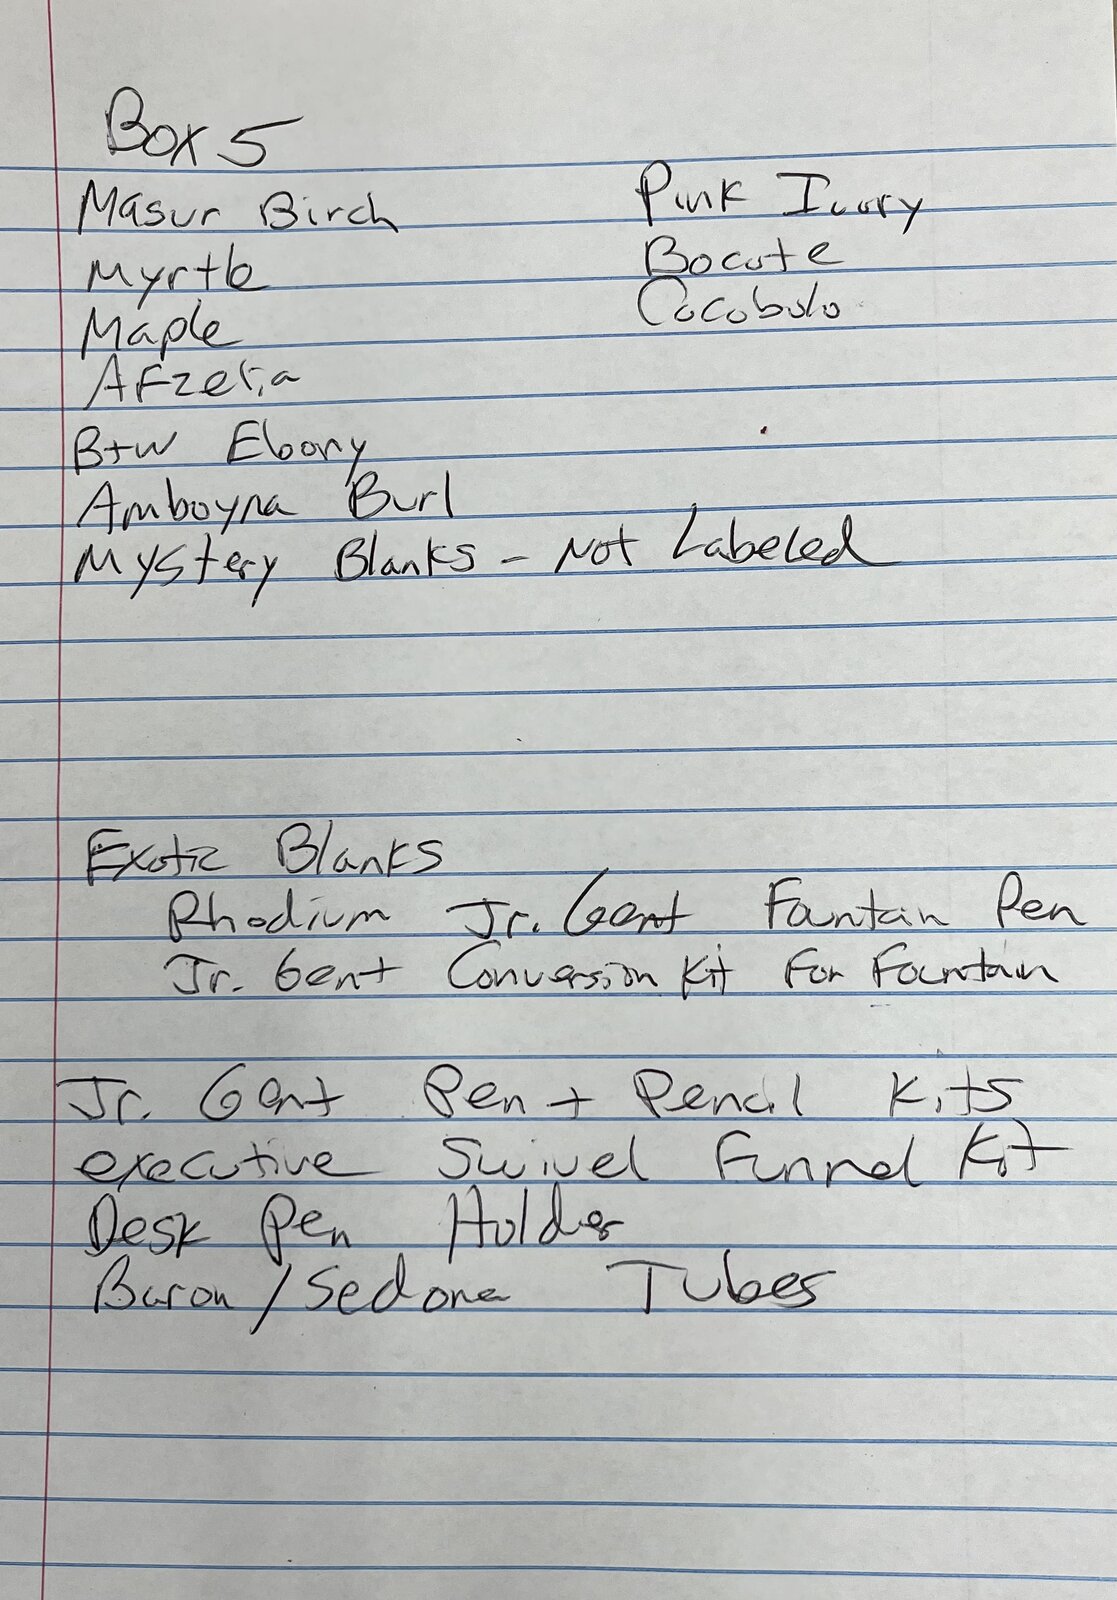 Box 5
Masur Birch
Myrtle
Maple
Afzelia
B+W Ebony
Amboyna Burl
Mystery Blanks - Not Labeled
Pink Ivory
Bocote
Cocobolo
Exotic Blanks
Rhodium Jr. Gent Fountain Pen
Jr. Gent Conversion Kit For Fountain
Jr. Gent Pen + Pencil Kits
executive Swivel Funnel Kit
Desk Pen Holder
Baron/Sedona Tubes